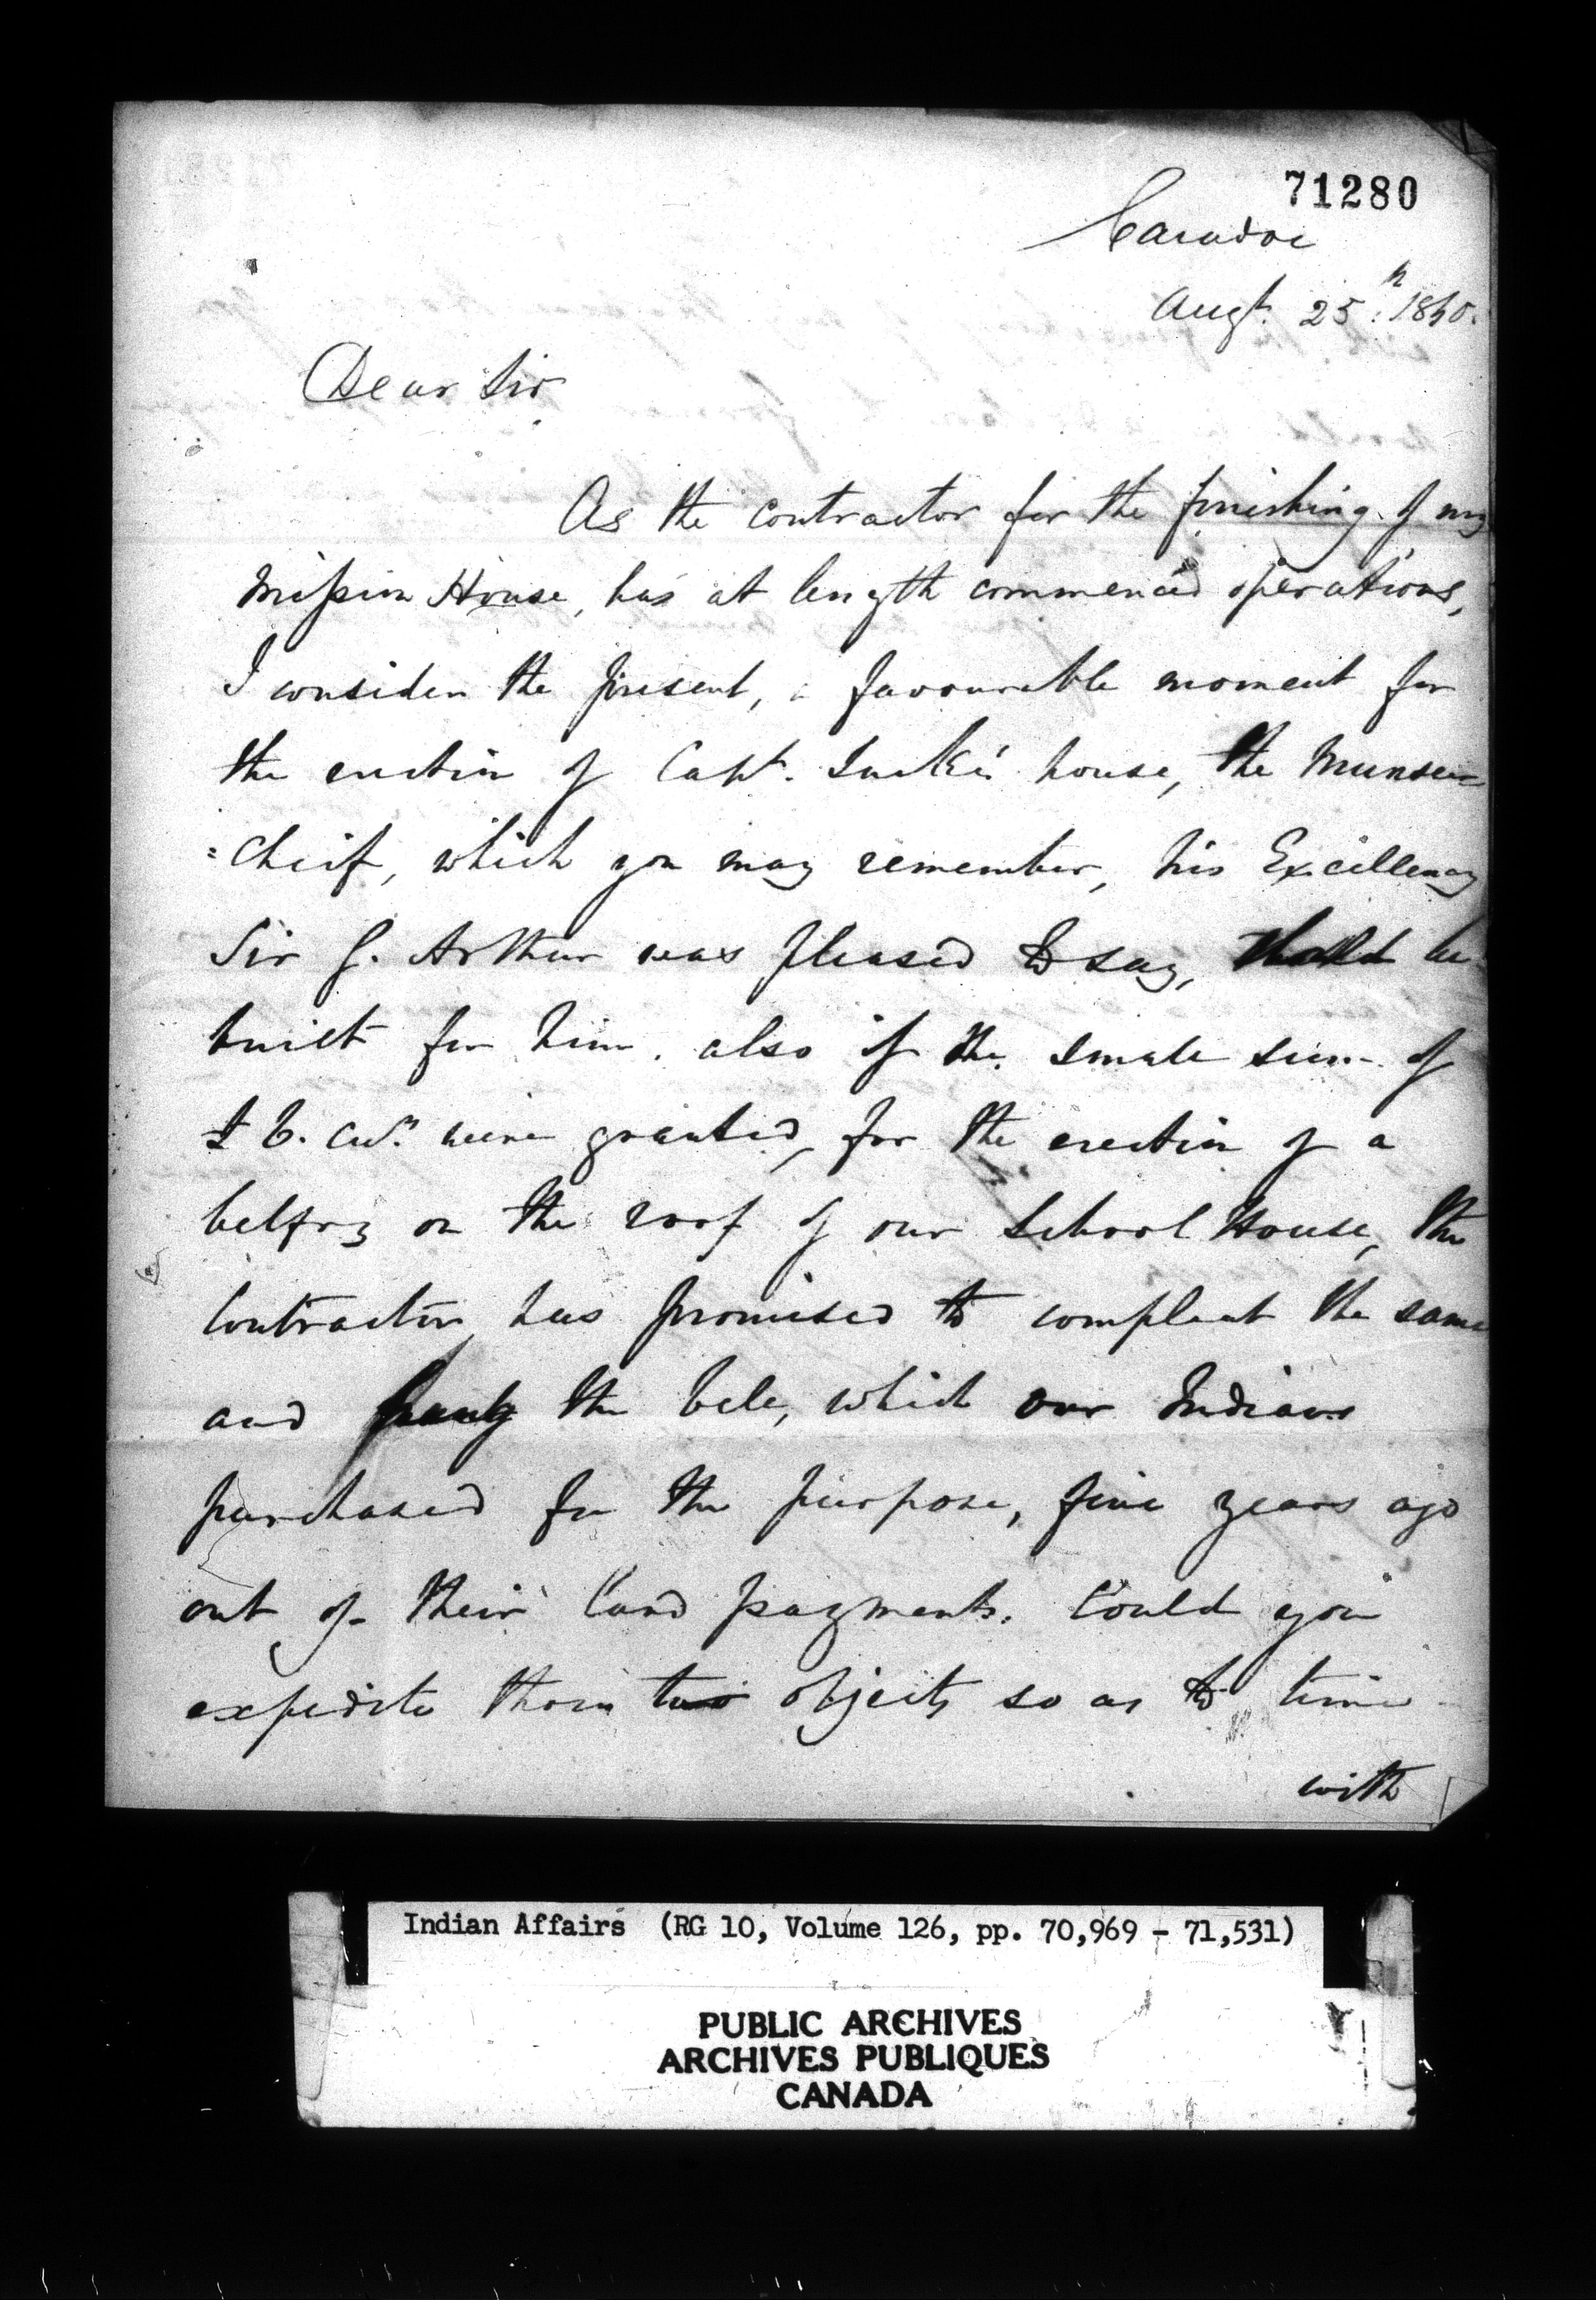 71280
Caradoc
Augt. 25th 1840.
Dear Sir
As the contractor for the finishing of my
Mission House, has at length commenced operations,
I consider the present, a favourable moment for
the erection of Capt. house, the Munsee
=Cheif, which you may remember, his Excellency
Sir G. Arthur was pleased to say, should be
built for him. also if the small sum of
£6. cuy. were granted, for the erection of a
belfry on the roof of our School House, the
Contractor, has promised to compleat the same
and hang the bell, which our Indians
purchased for the purpose, five years ago
out of their Land payments. Could you
expedite these two objects so as to time
with
Indian Affairs (RG 10, Volume 126, pp. 70,969 - 71,531)
PUBLIC ARCHIVES
ARCHIVES PUBLIQUES
CANADA